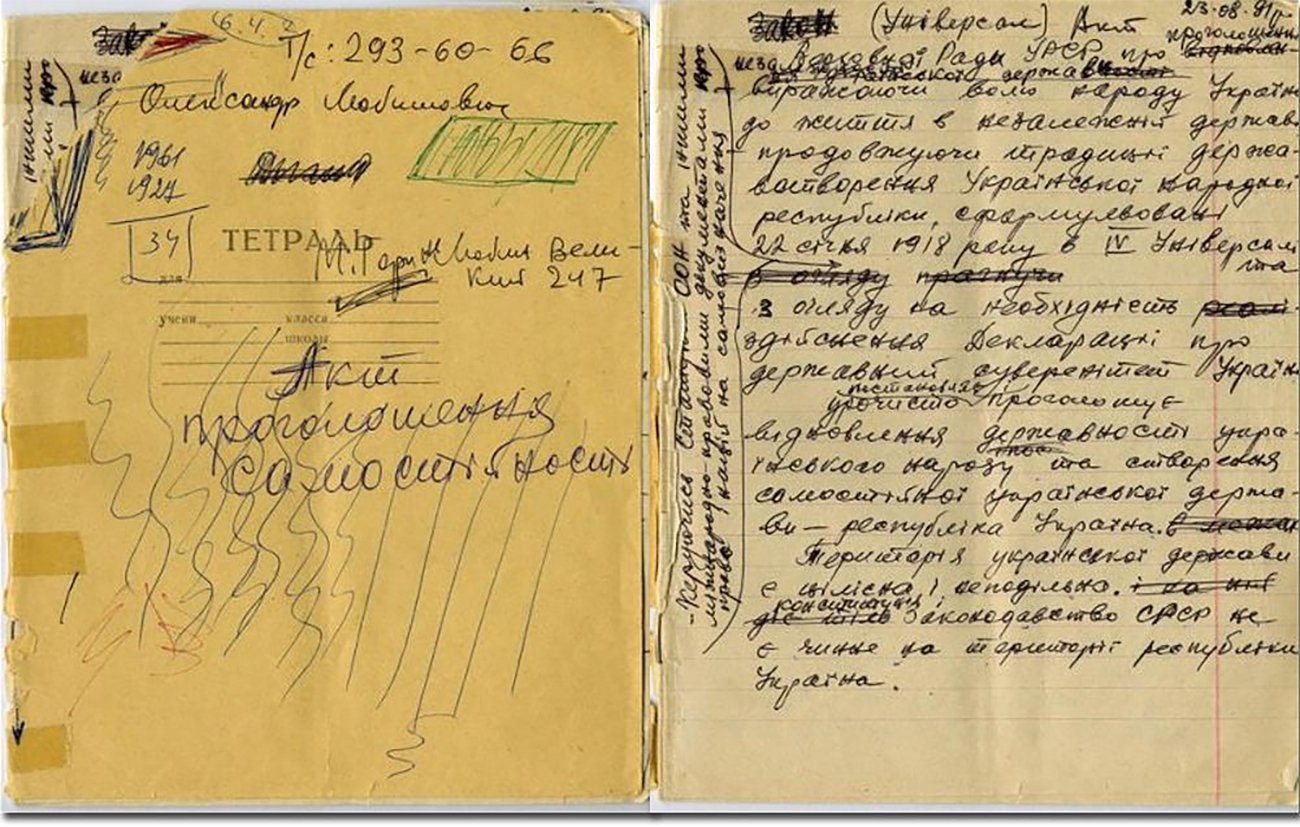 6.4.2
т/с: 293-60-66
Олександр
1961
1927
34
ТЕТРАДЬ
М. Горинь Вели-
кий 247
для
учени
класса
школы
Акт
проголошення
самостійності
23.08.91р.
Закон (Універсал) Акт
проголошення
Верховної Ради УРСР про
незалежної української державності
виражаючи волю народу України
до життя в незалежній державі
продовжуючи традиції держа-
вотворення Української народної
республіки, сформульовані
22 січня 1918 року в IV Універсалі
та
з огляду прагнучи
з огляду на необхідність реалі-
здійснення Декларації про
державний суверенітет України
урочисто проголошує
відновлення державності укра-
їнського народу та створення
самостійної української держа-
ви — республіка Україна. в межах
Територія української держави
є цілісна і неподільна. і на ній
конституція і
діє тільки Законодавство СРСР не
є чинне на території республіки
Україна.
- Керуючись Статутом ООН та іншими
міжнародно-правовими документами про
право націй на самовизначення